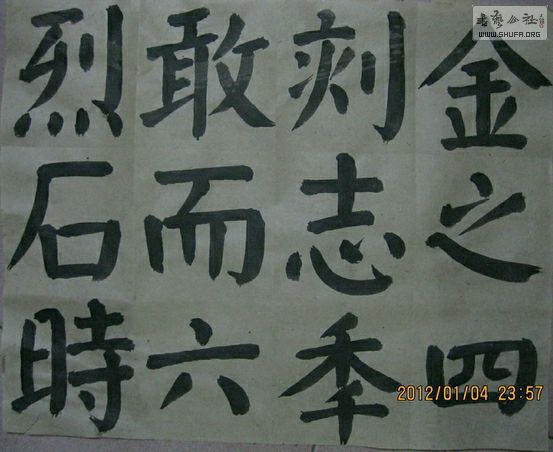 金之四
刻志季
敢而六
烈石時
书艺公社
WWW.SHUFA.ORG
2012/01/04 23:57